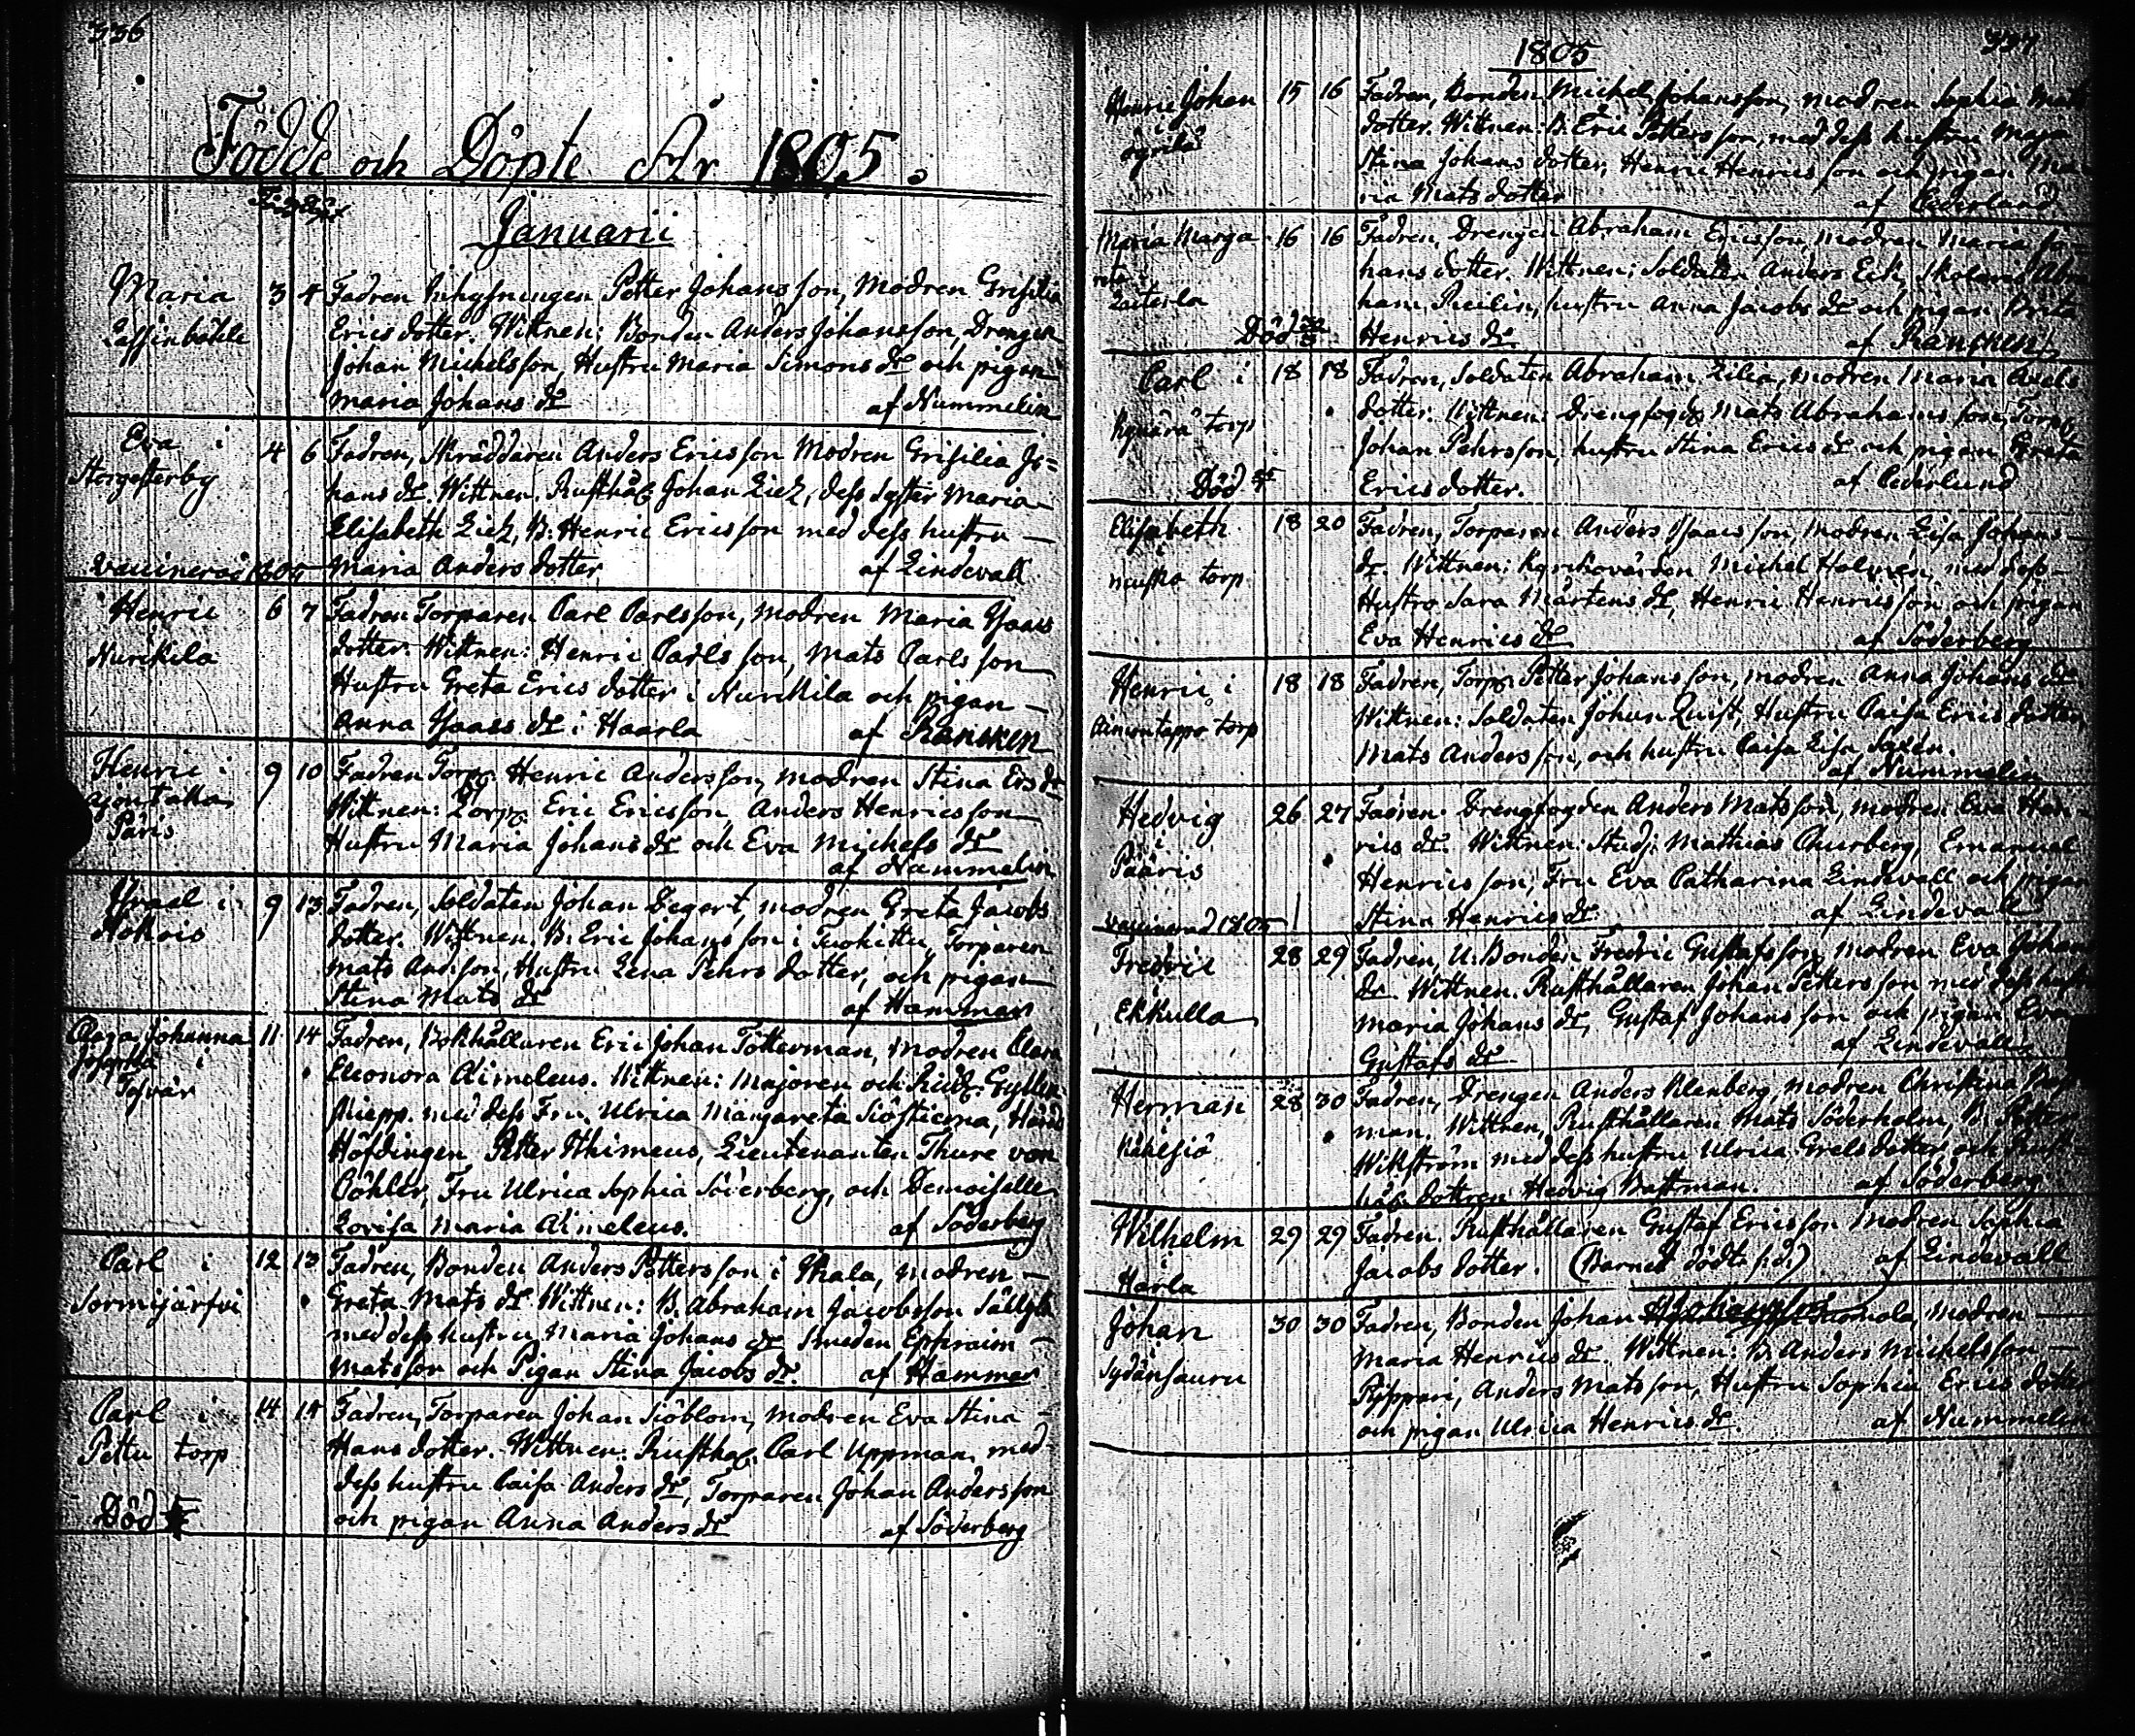 336
Födde och Döpte År 1805.
Januarii
Maria 3 4 Fadren Inhysningen Petter Johansson, Modren Grisilia
Lassinböhle Erics dotter. Wittnen: Bonden Anders Johansson, Drengen
Johan Michelsson, Hustru Maria Simons dr och pigan
Maria Johans dr af Nummelin
Eva i 4 6 Fadren, Skräddaren Anders Ericsson Modren Grisilia Jo=
Storgesterby hans dr. Wittnen. Rusthål. Johan Liez, dess Syster Maria
Elisabeth Liez, B: Henric Ericsson med dess hustru —
Vaccinerad Maria Anders dotter af Lindevall
Henric 6 7 Fadren Torparen Carl Carlsson, modren Maria Isaacs
Nurkkila dotter. Wittnen: Henric Carlsson, Mats Carlsson
Hustru Greta Erics dotter i Nurkkila och pigan —
Anna Isaacs dr i Haarla af Rancken
Henric i 9 10 Fadren Torp. Henric Andersson, modren Stina Ers dr
Ajontakka Wittnen: Torp. Eric Ericsson, Anders Henricsson
Päris Hustru Maria Johans dr och Eva Michels dr
af Nummelin
Israel i 9 13 Fadren, Soldaten Johan Degert, modren Greta Jacobs
dotter. Wittnen. B: Eric Johansson i Tuokittu, Torparen
Mats And:son, Hustru Lena Pehrs dotter, och pigan
Stina Mats dr af Hammar
Clara Johanna 11 14 Fadren, Bokhållaren Eric Johan Tötterman, Modren Clara
Josepha i Eleonora Aimeleus. Wittnen: Majoren och Ridd. Gyllen
Tojvär skiepp. med dess Fru Ulrica Margareta Siöstierna, Härads
Höfdingen Petter Ithimeus, Lieutenanten Thure von
Cöhler, Fru Ulrica Sophia Söderberg, och Demoiselle
Lovisa Maria Aimeleus. af Söderberg
Carl i 12 13 Fadren, Bonden Anders Pettersson i Ihala, modren —
Sormijärfvi Greta Mats dr. Wittnen: B. Abraham Jacobsson Sällylä
med dess hustru Maria Johans dr Smeden Ephraim —
Matsson och Pigan Stina Jacobs dr. af Hammar
Carl i 14 14 Fadren, Torparen Johan Siöblom, modren Eva Stina
Pettu torp Hans dotter. Wittnen: Rusthål. Carl Uppman, med
dess hustru Caisa Anders dr, Torparen Johan Andersson
Död och pigan Anna Anders dr af Söderberg
1805 337
Henric Johan 15 16 Fadren, Bonden Michel Johansson, modren Sophia Mats
i dotter. Wittnen: B. Eric Pettersson, med dess hustru Maja
Stina Johans dotter, Henric Henricsson och pigan Ma=
ria Mats dotter af Cederlund
Maria Marga 16 16 Fadren, Drengen Abraham Ericsson, modren Maria Jo=
reta i hans dotter. Wittnen: Soldaten Anders Eck, Skolaren Abra
Laiterla ham Reilin, hustru Anna Jacobs dr och pigan Brita
Död Henrics dr af Rancken
Carl i 18 18 Fadren, Soldaten Abraham Lilia, modren Maria Axels
torp dotter. Wittnen: Drengfogd. Mats Abrahamsson, Torp.
Johan Pehrsson, hustru Stina Erics dr och pigan Greta
Död Erics dotter. af Cederlund
Elisabeth 18 20 Fadren, Torparen Anders Isaacsson, modren Lisa Johans —
i dr. Wittnen: Kyrkovärden Michel Holmen, med dess —
torp Hustro Sara Mårtens dr, Henric Henricsson och pigan
Eva Henrics dr af Söderberg
Henric i 18 18 Fadren, Torp. Petter Johansson, modren Anna Johans dr
torp Wittnen: Soldaten Johan Quist, Hustru Caisa Erics dotter,
Mats Andersson, och hustru Caisa Lisa Saxén.
af Nummelin
Hedvig 26 27 Fadren. Drengfogden Anders Matsson, modren Eva Hen=
i rics dr. Wittnen: Stud: Mathias Churberg, Emanuel
Pääris Henricsson, Fru Eva Catharina Lindevall och pigan
vaccinerad 1805 Stina Henrics dr. af Lindevall
Fredric 28 29 Fadren, U. Bonden Fredric Gustafsson, modren Eva Johans
i dr. Wittnen. Rusthållaren Johan Pettersson med dess hustru
Ekkulla Maria Johans dr, Gustaf Johansson och pigan Eva
Gustafs dr af Lindevall
Herman 28 30 Fadren, Drengen Anders Alenberg, modren Christina
i man. Wittnen, Rusthållaren Mats Söderholm, B: Petter
Wikström med dess hustru Ulrica Grels dotter och Rust
hål. dottren Hedvig Bastman. af Söderberg
Wilhelm 29 29 Fadren. Rusthållaren Gustaf Ericsson Modren Sophia
i Jacobs dotter. (Barnet dödt f:d:) af Lindevall
Harla
Johan 30 30 Fadren, Bonden Johan Tuomola, Modren —
i Maria Henrics dr. Wittnen: B. Anders Michelsson —
Sydänsauru Anders Matsson, Hustru Sophia Erics dotter
och pigan Ulrica Henrics dr. af Nummelin